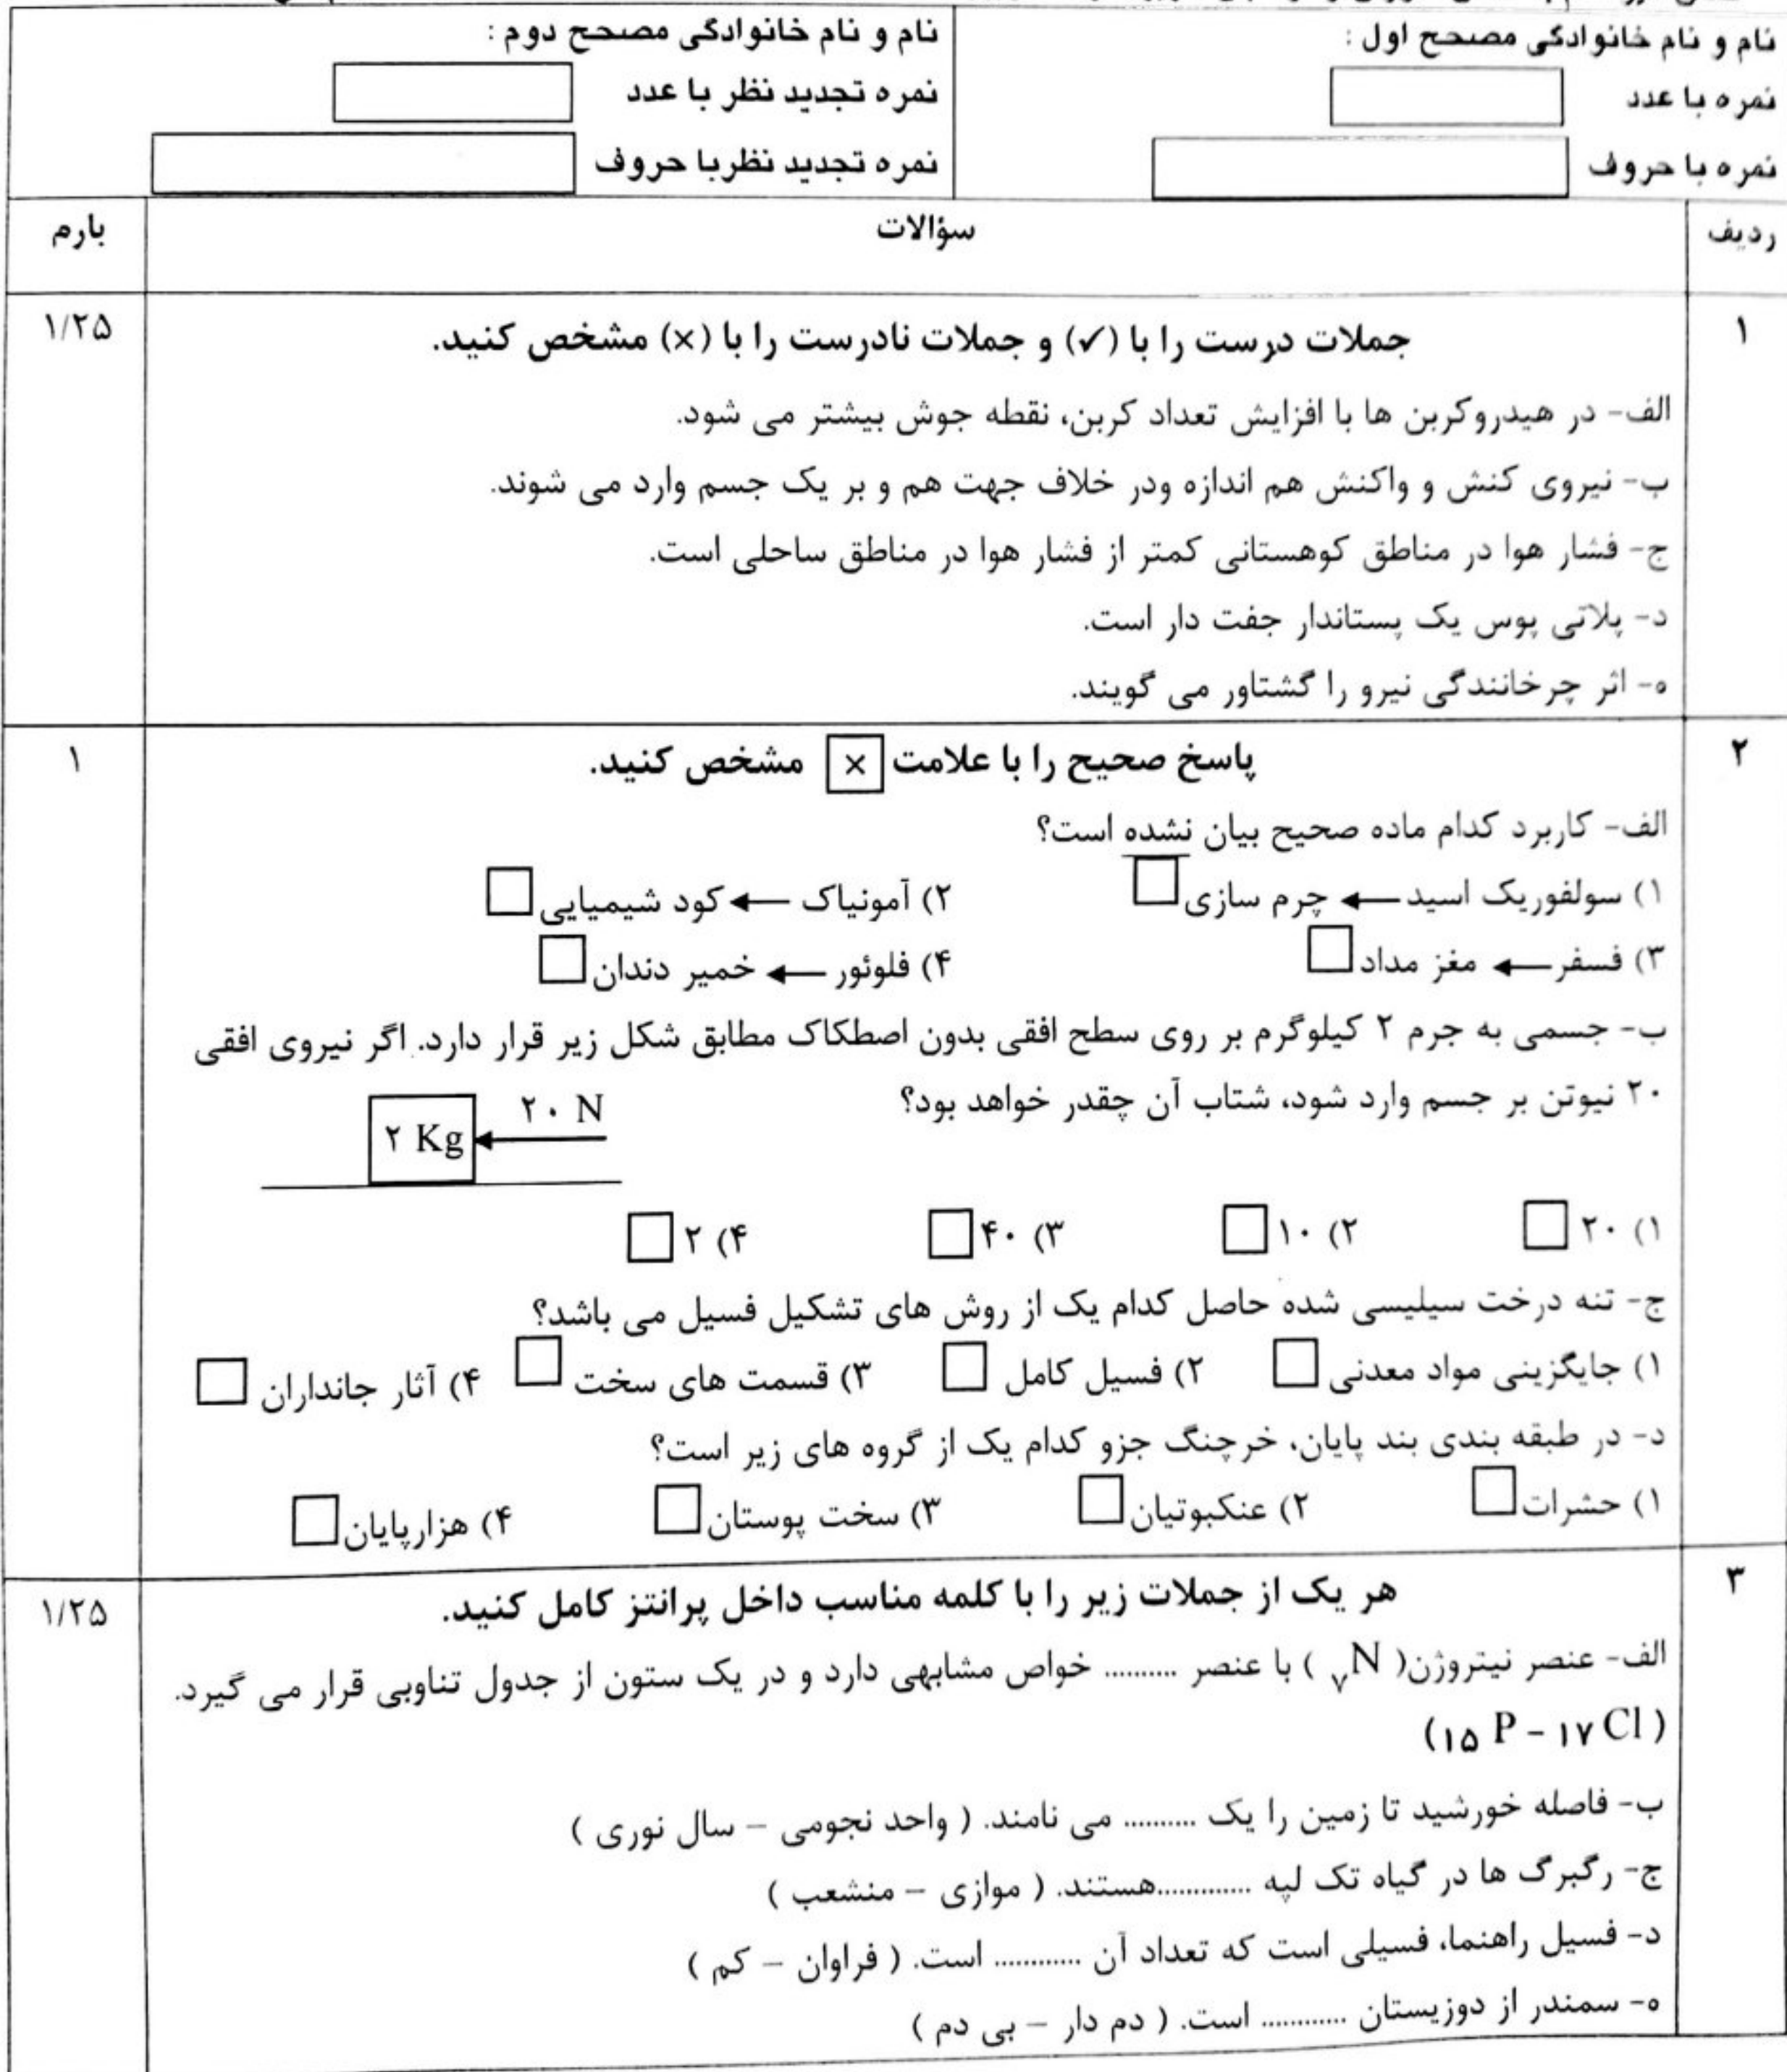 نام و نام خانوادگی مصحح اول :
نمره با عدد
نمره با حروف
نام و نام خانوادگی مصحح دوم :
نمره تجدید نظر با عدد
نمره تجدید نظربا حروف
ردیف سؤالات بارم
۱ جملات درست را با (✓) و جملات نادرست را با (×) مشخص کنید. ۱/۲۵
الف- در هیدروکربن ها با افزایش تعداد کربن، نقطه جوش بیشتر می شود.
ب- نیروی کنش و واکنش هم اندازه ودر خلاف جهت هم و بر یک جسم وارد می شوند.
ج- فشار هوا در مناطق کوهستانی کمتر از فشار هوا در مناطق ساحلی است.
د- پلاتی پوس یک پستاندار جفت دار است.
ه- اثر چرخانندگی نیرو را گشتاور می گویند.
۲ پاسخ صحیح را با علامت × مشخص کنید. ۱
الف- کاربرد کدام ماده صحیح بیان نشده است؟
۱) سولفوریک اسید ← چرم سازی ۲) آمونیاک ← کود شیمیایی
۳) فسفر ← مغز مداد ۴) فلوئور ← خمیر دندان
ب- جسمی به جرم ۲ کیلوگرم بر روی سطح افقی بدون اصطکاک مطابق شکل زیر قرار دارد. اگر نیروی افقی
۲۰ نیوتن بر جسم وارد شود، شتاب آن چقدر خواهد بود؟
۲۰ N
۲ Kg
۱) ۲۰ ۲) ۱۰ ۳) ۴۰ ۴) ۲
ج- تنه درخت سیلیسی شده حاصل کدام یک از روش های تشکیل فسیل می باشد؟
۱) جایگزینی مواد معدنی ۲) فسیل کامل ۳) قسمت های سخت ۴) آثار جانداران
د- در طبقه بندی بند پایان، خرچنگ جزو کدام یک از گروه های زیر است؟
۱) حشرات ۲) عنکبوتیان ۳) سخت پوستان ۴) هزارپایان
۳ هر یک از جملات زیر را با کلمه مناسب داخل پرانتز کامل کنید. ۱/۲۵
الف- عنصر نیتروژن( ۷N ) با عنصر .......... خواص مشابهی دارد و در یک ستون از جدول تناوبی قرار می گیرد.
(۱۵ P – ۱۷ Cl)
ب- فاصله خورشید تا زمین را یک .......... می نامند. ( واحد نجومی – سال نوری )
ج- رگبرگ ها در گیاه تک لپه .............هستند. ( موازی – منشعب )
د- فسیل راهنما، فسیلی است که تعداد آن ............ است. ( فراوان – کم )
ه- سمندر از دوزیستان ............ است. ( دم دار – بی دم )